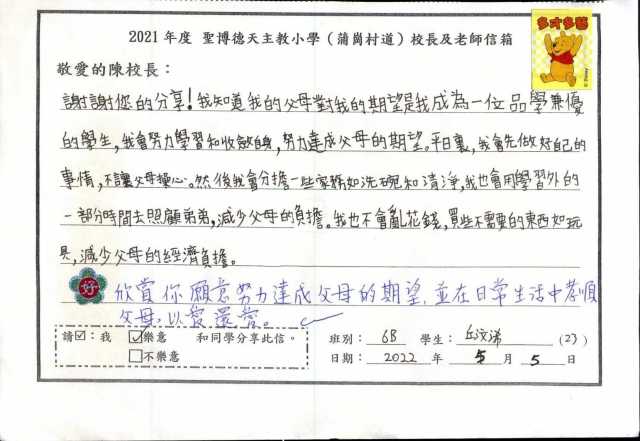 2021 年度 聖博德天主教小學（蒲崗村道）校長及老師信箱
多才多藝
© Disney
敬愛的陳校長：
謝謝您的分享！我知道我的父母對我的期望是我成為一位品學兼優
的學生，我會努力學習和收斂自身，努力達成父母的期望。平日裏，我會先做好自己的
事情，不讓父母擔心。然後我會分擔一些家務如洗碗和清淨，我也會用學習外的
一部分時間去照顧弟弟，減少父母的負擔。我也不會亂花錢，買些不需要的東西如玩
具，減少父母的經濟負擔。
好
欣賞你願意努力達成父母的期望，並在日常生活中孝順
父母，以愛還愛。
請☑：我 ☑樂意 和同學分享此信。
□不樂意
班別： 6B 學生： 丘汶 (23)
日期： 2022 年 5 月 5 日